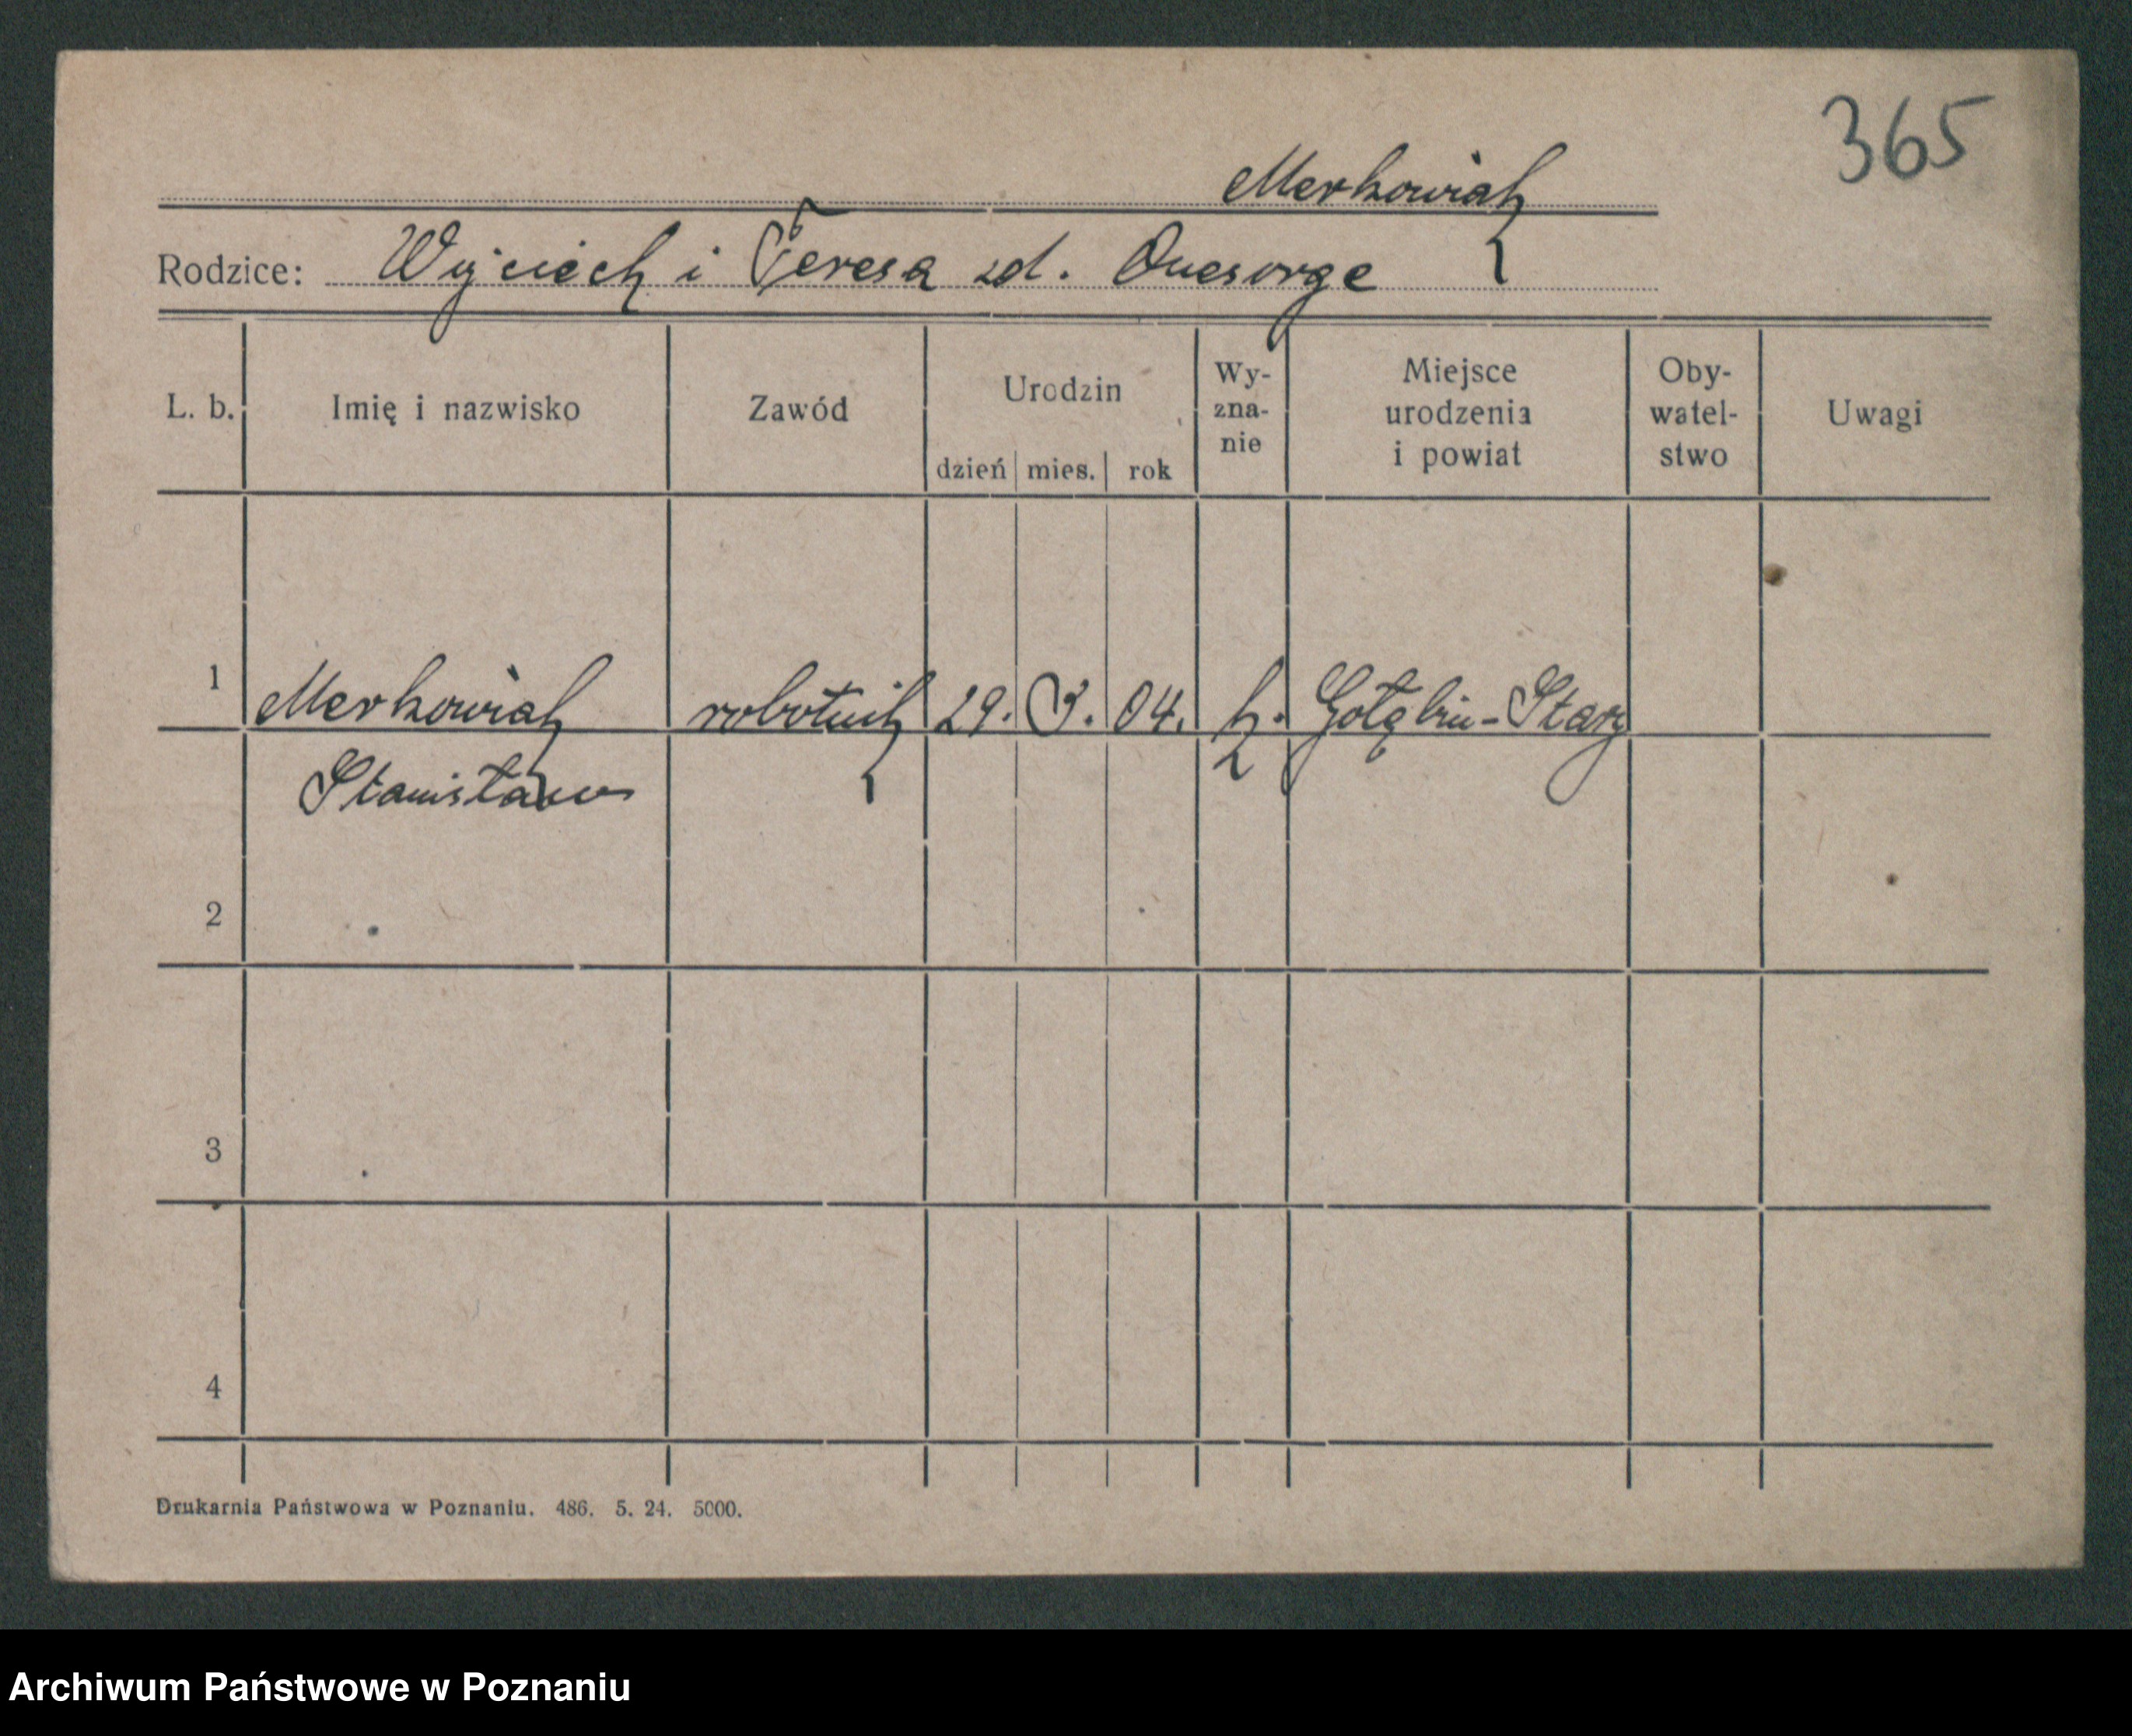 365
Merkowiak
Rodzice: Wojciech i Teresa zd. Onesorge
L. b. Imię i nazwisko Zawód Urodzin dzień mies. rok Wy-zna-nie Miejsce urodzenia i powiat Oby-watel-stwo Uwagi
1 Merkowiak robotnik 29. 3. 04. k. Gołębin-Stary
Stanisław
2
3
4
Drukarnia Państwowa w Poznaniu. 486. 5. 24. 5000.
Archiwum Państwowe w Poznaniu